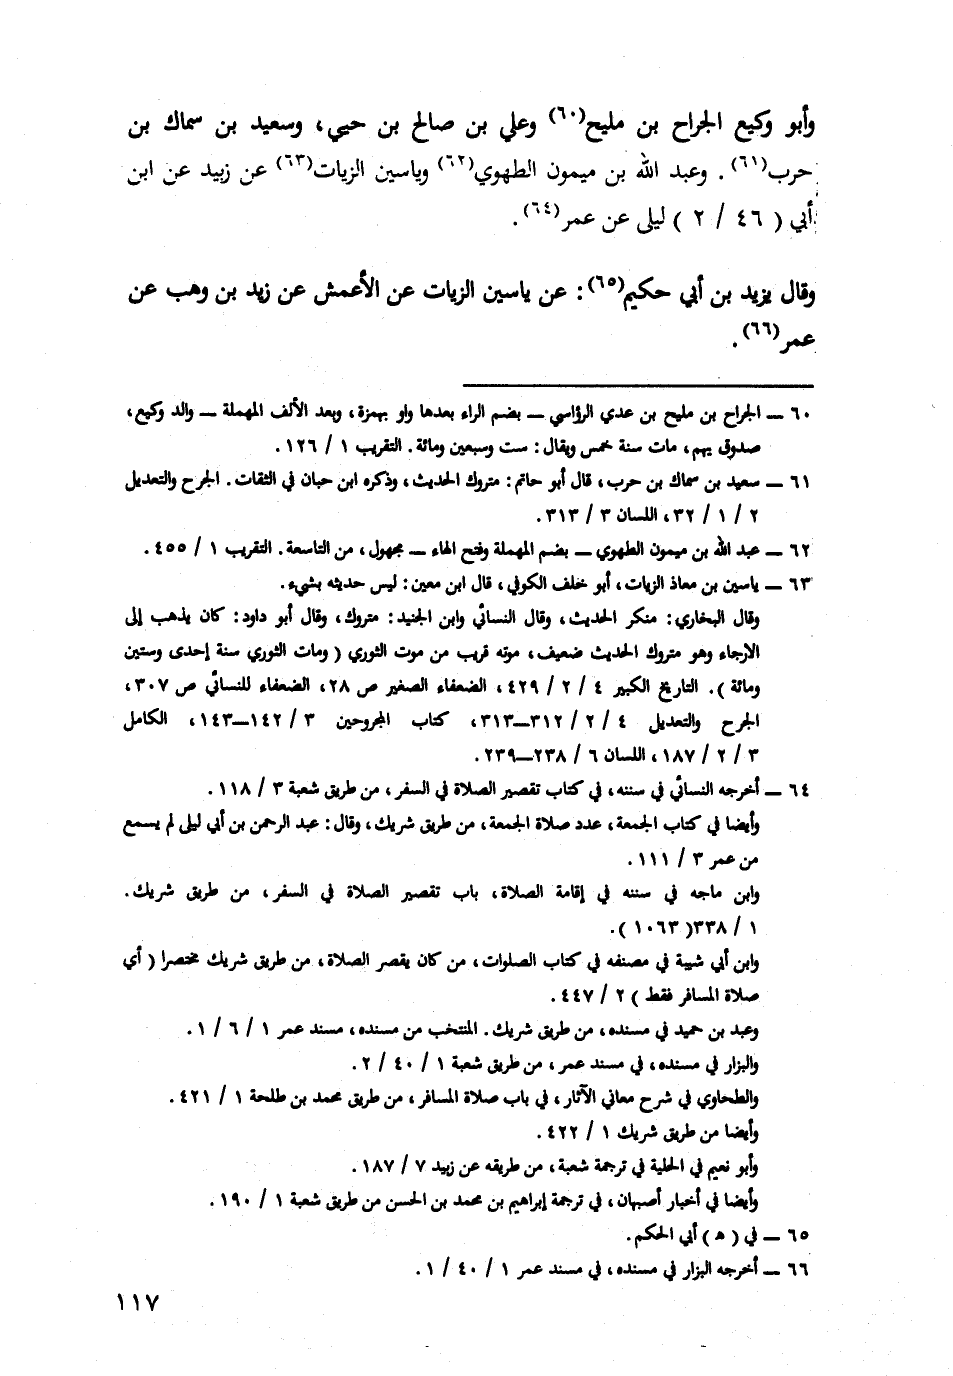 وأبو وكيع الجراح بن مليح(٦٠) وعلي بن صالح بن حيي، وسعيد بن سماك بن
حرب(٦١). وعبد الله بن ميمون الطهوي(٦٢) وياسين الزيات(٦٣) عن زبيد عن ابن
أبي ( ٤٦ / ٢ ) ليلى عن عمر(٦٤).
وقال يزيد بن أبي حكيم(٦٥): عن ياسين الزيات عن الأعمش عن زيد بن وهب عن
عمر(٦٦).
٦٠ — الجراح بن مليح بن عدي الرؤاسي — بضم الراء بعدها واو بهمزة، وبعد الألف المهملة — والد وكيع،
صدوق يهم، مات سنة خمس ويقال: ست وسبعين ومائة. التقريب ١ / ١٢٦.
٦١ — سعيد بن سماك بن حرب، قال أبو حاتم: متروك الحديث، وذكره ابن حبان في الثقات. الجرح والتعديل
٢ / ١ / ٣٢، اللسان ٣ / ٣١٣.
٦٢ — عبد الله بن ميمون الطهوي — بضم المهملة وفتح الهاء — مجهول، من التاسعة. التقريب ١ / ٤٥٥.
٦٣ — ياسين بن معاذ الزيات، أبو خلف الكوفي، قال ابن معين: ليس حديثه بشيء.
وقال البخاري: منكر الحديث، وقال النسائي وابن الجنيد: متروك، وقال أبو داود: كان يذهب إلى
الارجاء وهو متروك الحديث ضعيف، موته قريب من موت الثوري ( ومات الثوري سنة إحدى وستين
ومائة ). التاريخ الكبير ٤ / ٢ / ٤٢٩، الضعفاء الصغير ص ٢٨، الضعفاء للنسائي ص ٣٠٧،
الجرح والتعديل ٤ / ٢ / ٣١٢—٣١٣، كتاب المجروحين ٣ / ١٤٢—١٤٣، الكامل
٣ / ٢ / ١٨٧، اللسان ٦ / ٢٣٨—٢٣٩.
٦٤ — أخرجه النسائي في سننه، في كتاب تقصير الصلاة في السفر، من طريق شعبة ٣ / ١١٨.
وأيضا في كتاب الجمعة، عدد صلاة الجمعة، من طريق شريك، وقال: عبد الرحمن بن أبي ليلى لم يسمع
من عمر ٣ / ١١١.
وابن ماجه في سننه في إقامة الصلاة، باب تقصير الصلاة في السفر، من طريق شريك.
١ / ٣٣٨( ١٠٦٣ ).
وابن أبي شيبة في مصنفه في كتاب الصلوات، من كان يقصر الصلاة، من طريق شريك مختصرا ( أي
صلاة المسافر فقط ) ٢ / ٤٤٧.
وعبد بن حميد في مسنده، من طريق شريك. المنتخب من مسنده، مسند عمر ١ / ٦ / ١.
والبزار في مسنده، في مسند عمر، من طريق شعبة ١ / ٤٠ / ٢.
والطحاوي في شرح معاني الآثار، في باب صلاة المسافر، من طريق محمد بن طلحة ١ / ٤٢١.
وأيضا من طريق شريك ١ / ٤٢٢.
وأبو نعيم في الحلية في ترجمة شعبة، من طريقه عن زبيد ٧ / ١٨٧.
وأيضا في أخبار أصبهان، في ترجمة إبراهيم بن محمد بن الحسن من طريق شعبة ١ / ١٩٠.
٦٥ — في ( ه ) أبي الحكم.
٦٦ — أخرجه البزار في مسنده، في مسند عمر ١ / ٤٠ / ١.
١١٧